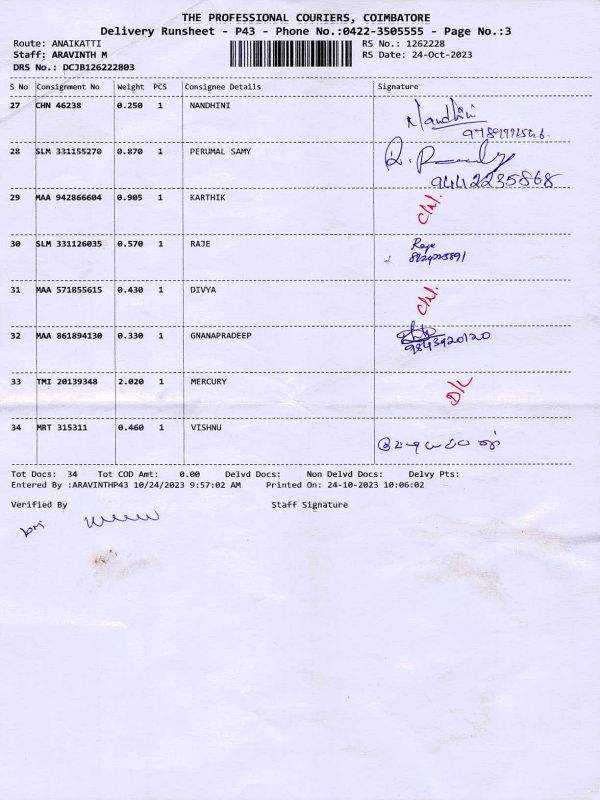 THE PROFESSIONAL COURIERS, COIMBATORE
Delivery Runsheet - P43 - Phone No.:0422-3505555 - Page No.:3
Route: ANAIKATTI RS No.: 1262228
Staff: ARAVINTH M RS Date: 24-Oct-2023
DRS No.: DCJB126222803
S No Consignment No Weight PCS Consignee Details Signature
27 CHN 46238 0.250 1 NANDHINI Nandhini
28 SLM 331155270 0.870 1 PERUMAL SAMY
9442235868
29 MAA 942866604 0.905 1 KARTHIK
30 SLM 331126035 0.570 1 RAJE Raje
31 MAA 571855615 0.430 1 DIVYA
32 MAA 861894130 0.330 1 GNANAPRADEEP
9843920120
33 TMI 20139348 2.020 1 MERCURY D/L
34 MRT 315311 0.460 1 VISHNU
Tot Docs: 34 Tot COD Amt: 0.00 Delvd Docs: Non Delvd Docs: Delvy Pts:
Entered By :ARAVINTHP43 10/24/2023 9:57:02 AM Printed On: 24-10-2023 10:06:02
Verified By Staff Signature